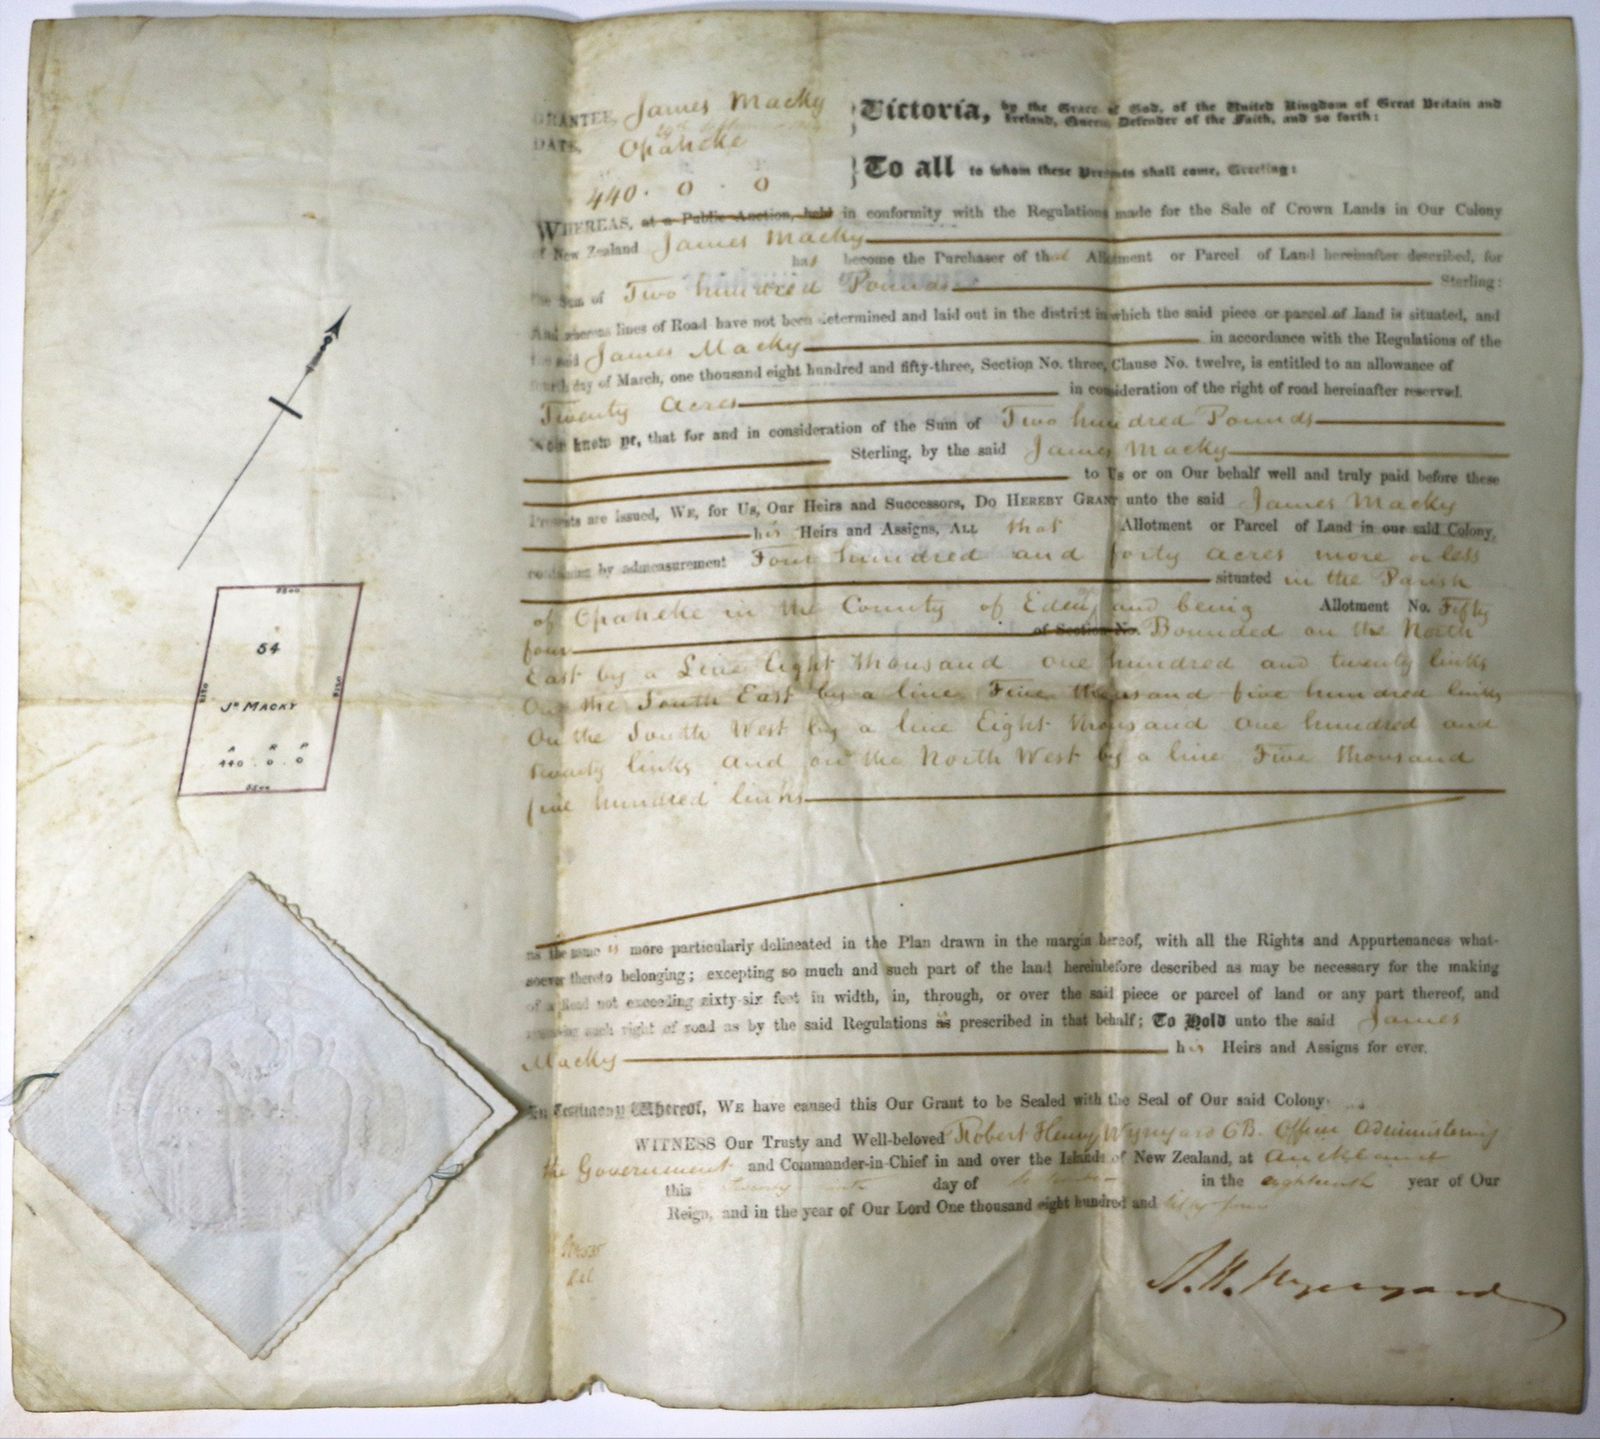 GRANTEE, James Macky
DATE, 29th September
Opaheke
440 . 0 . 0
Victoria, by the Grace of God, of the United Kingdom of Great Britain and
Ireland, Queen, Defender of the Faith, and so forth:
To all to whom these Presents shall come, Greeting:
WHEREAS, at a Public Auction, held in conformity with the Regulations made for the Sale of Crown Lands in Our Colony
of New Zealand James Macky
has become the Purchaser of that Allotment or Parcel of Land hereinafter described, for
the Sum of Two hundred Pounds Sterling:
And whereas lines of Road have not been determined and laid out in the district in which the said piece or parcel of land is situated, and
the said James Macky in accordance with the Regulations of the
fourth day of March, one thousand eight hundred and fifty-three, Section No. three, Clause No. twelve, is entitled to an allowance of
Twenty Acres in consideration of the right of road hereinafter reserved.
Now know ye, that for and in consideration of the Sum of Two hundred Pounds
Sterling, by the said James Macky
to Us or on Our behalf well and truly paid before these
Presents are issued, WE, for Us, Our Heirs and Successors, DO HEREBY GRANT unto the said James Macky
his Heirs and Assigns, ALL that Allotment or Parcel of Land in our said Colony,
containing by admeasurement Four hundred and forty acres more or less
situated in the Parish
of Opaheke in the County of Eden, and being Allotment No. Fifty
four of Section No. Bounded on the North
East by a Line Eight thousand one hundred and twenty links
On the South East by a line Five thousand five hundred links
On the South West by a line Eight thousand one hundred and
twenty links and on the North West by a line Five thousand
five hundred links
as the same is more particularly delineated in the Plan drawn in the margin hereof, with all the Rights and Appurtenances what-
soever thereto belonging; excepting so much and such part of the land hereinbefore described as may be necessary for the making
of a Road not exceeding sixty-six feet in width, in, through, or over the said piece or parcel of land or any part thereof, and
such right of road as by the said Regulations is prescribed in that behalf; To Hold unto the said James
Macky his Heirs and Assigns for ever.
In Testimony Whereof, WE have caused this Our Grant to be Sealed with the Seal of Our said Colony
WITNESS Our Trusty and Well-beloved Robert Henry Wynyard CB. Officer Administering
the Government and Commander-in-Chief in and over the Islands of New Zealand, at Auckland
this twenty ninth day of September in the eighteenth year of Our
Reign, and in the year of Our Lord One thousand eight hundred and fifty four
R. H. Wynyard
5500
54
8120
8120
Js MACKY
A R P
440 . 0 . 0
5500